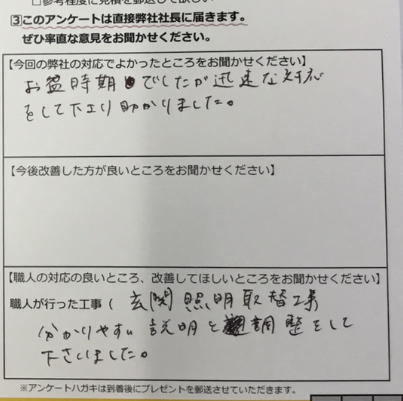 □参考程度に見積を郵送して欲しい
③このアンケートは直接弊社社長に届きます。
ぜひ率直な意見をお聞かせください。
【今回の弊社の対応でよかったところをお聞かせください】
お盆時期でしたが迅速な対応
をして下さり助かりました。
【今後改善した方が良いところをお聞かせください】
【職人の対応の良いところ、改善してほしいところをお聞かせください】
職人が行った工事（ 玄関照明取替工事
分かりやすい説明と調整をして
下さいました。
※アンケートハガキは到着後にプレゼントを郵送させていただきます。